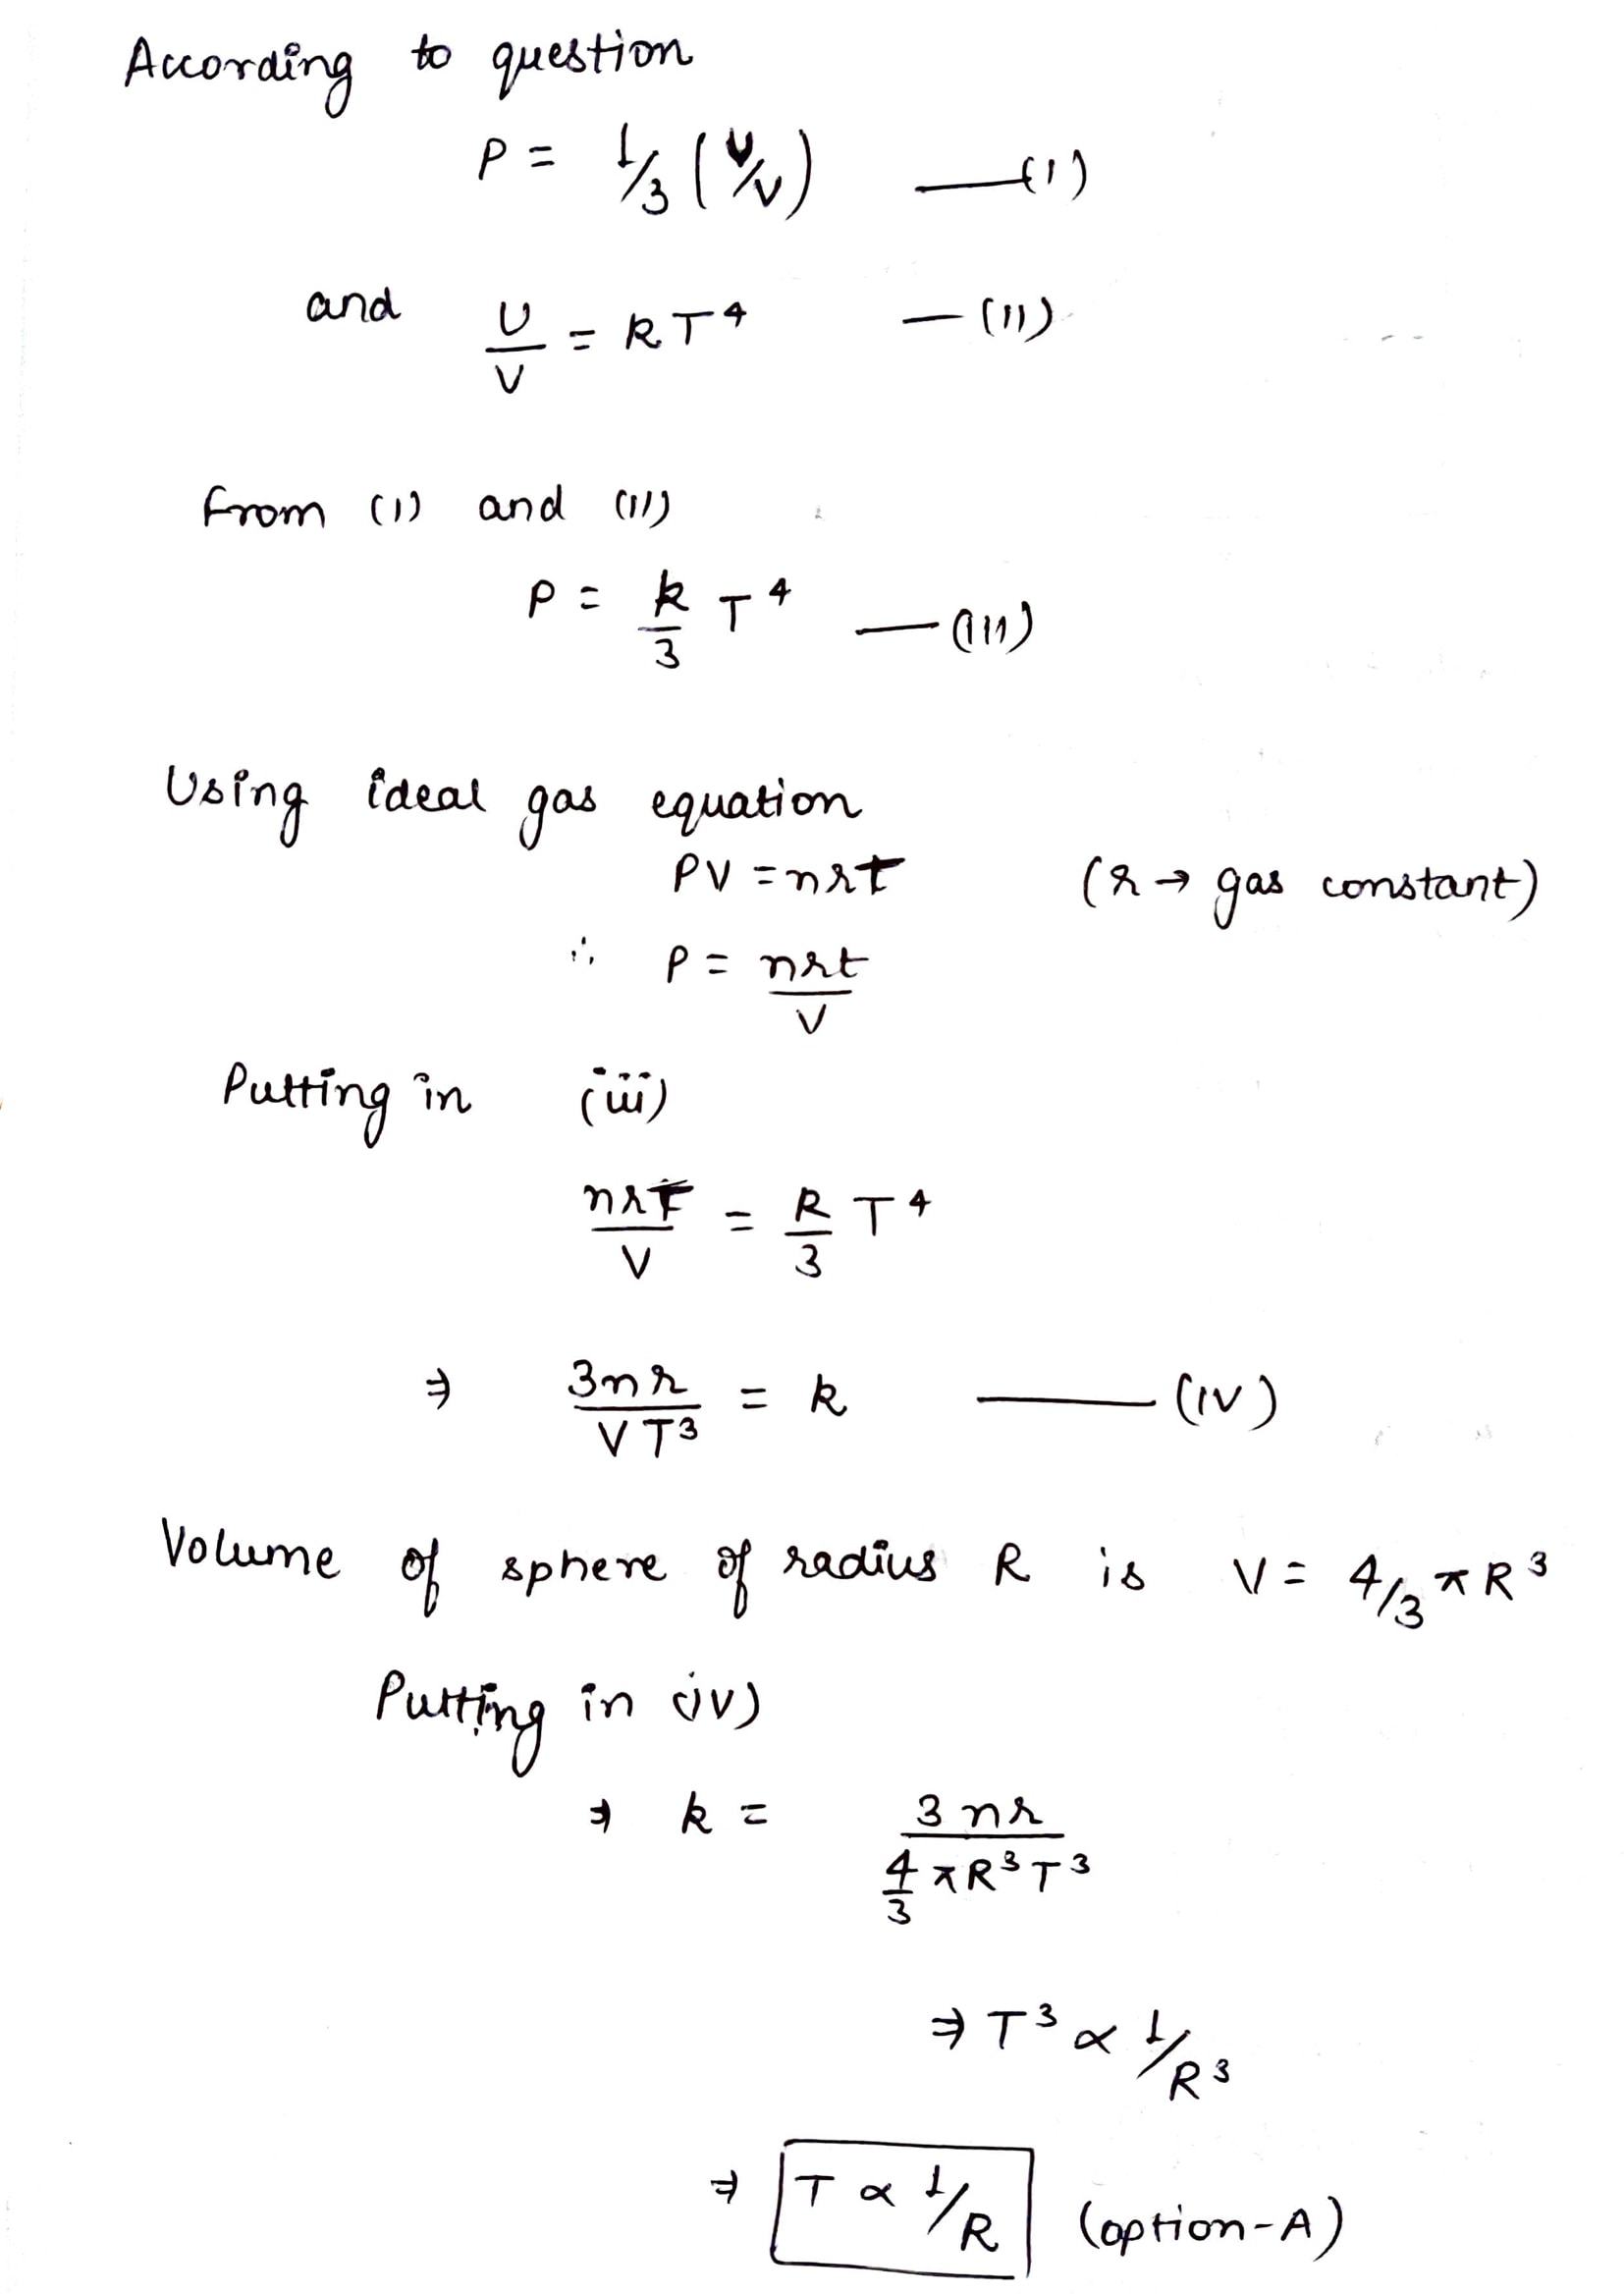 According to question
P = 1/3 (U/V) —(I)
and U/V = kT⁴ —(II)
From (I) and (II)
P = k/3 T⁴ —(III)
Using ideal gas equation
PV = nrt (r → gas constant)
∴ P = nrt/V
Putting in (iii)
nrT/V = k/3 T⁴
⇒ 3nr/VT³ = k —(IV)
Volume of sphere of radius R is V = 4/3 πR³
Putting in (iv)
⇒ k = 3nr / 4/3 πR³T³
⇒ T³ ∝ 1/R³
⇒ T ∝ 1/R (option-A)